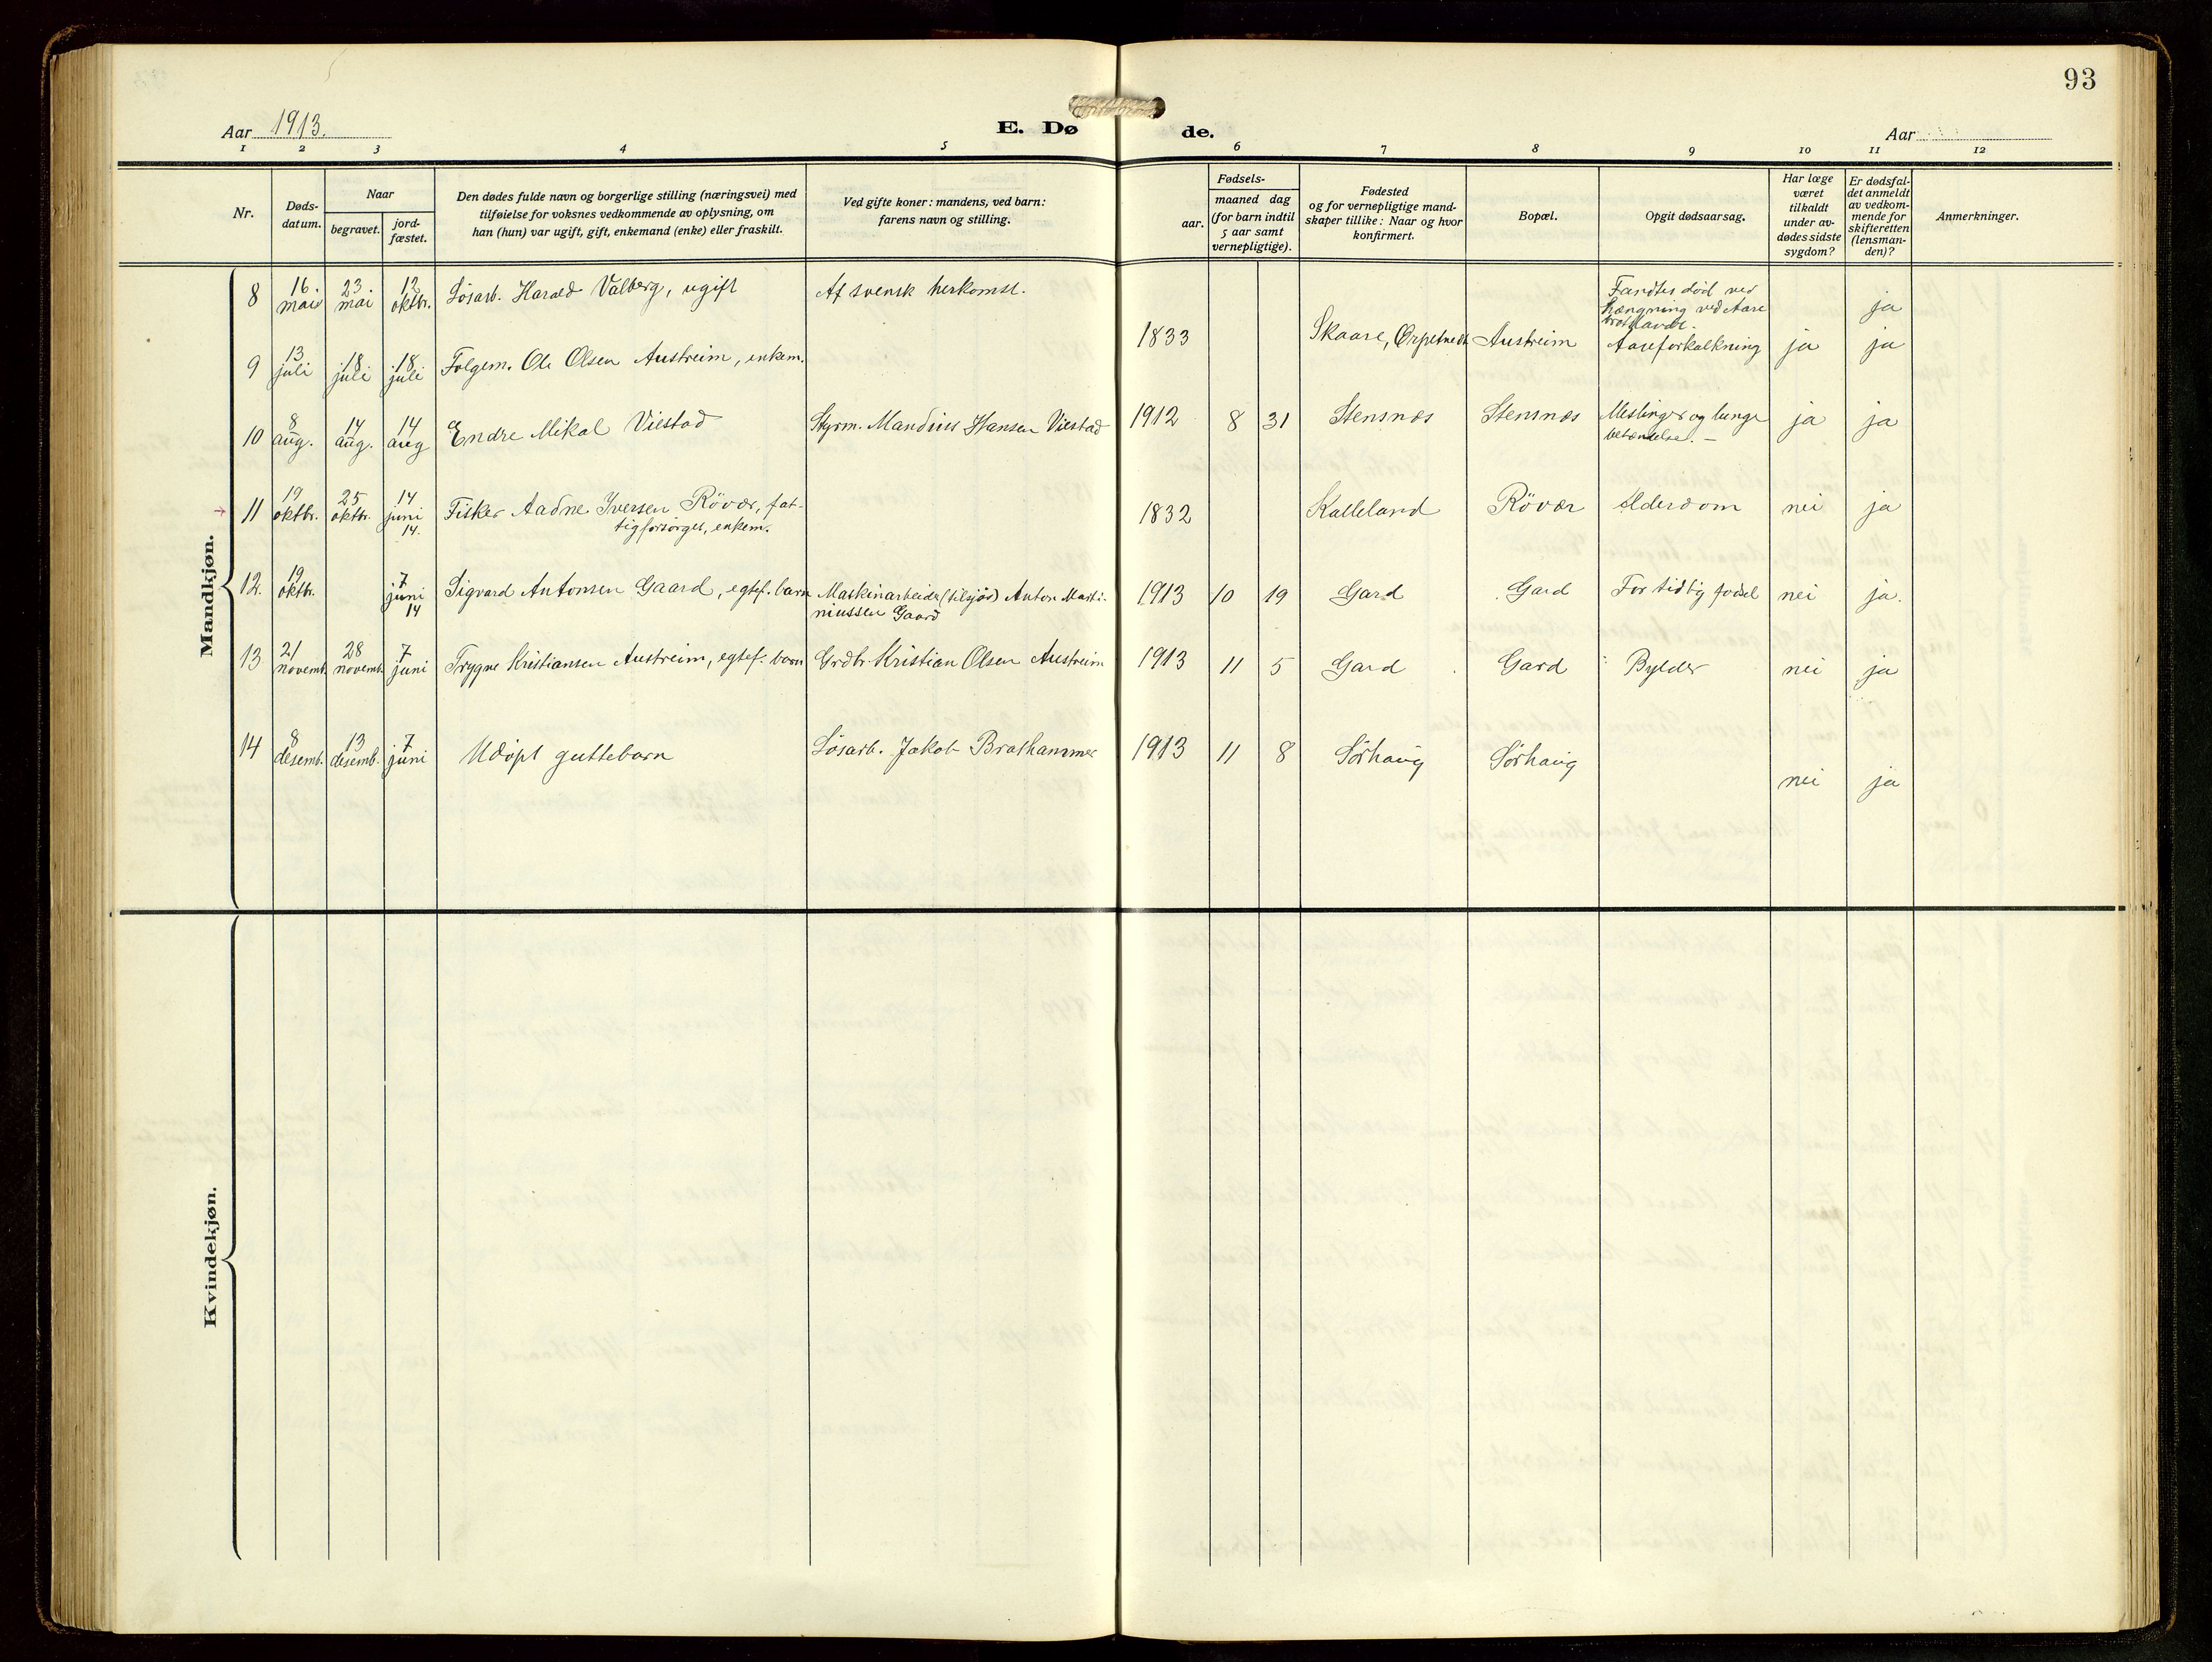 93
Aar 1913.
E. Dø
de.
Aar
1 2 3 4 5 6 7 8 9 10 11 12
Nr.
Døds-
datum.
Naar
begravet.
jord-
fæstet.
Den dødes fulde navn og borgerlige stilling (næringsvei) med
tilføielse for voksnes vedkommende av oplysning, om
han (hun) var ugift, gift, enkemand (enke) eller fraskilt.
Ved gifte koner: mandens, ved barn:
farens navn og stilling.
Fødsels-
aar.
maaned dag
(for barn indtil
5 aar samt
vernepligtige).
Fødested
og for vernepligtige mand-
skaper tillike: Naar og hvor
konfirmert.
Bopæl.
Opgit dødsaarsag.
Har læge
været
tilkaldt
under av-
dødes sidste
sygdom?
Er dødsfal-
det anmeldt
av vedkom-
mende for
skifteretten
(lensman-
den)?
Anmerkninger.
Mandkjøn.
8 16. mai 23. mai 12 oktbr. Løsarb. Harald Valberg, ugift Af svensk herkomst. Fandtes død ved
hængning ved Aare
ja
9 13 juli 18 juli 18 juli Folgem. Ole Olsen Austreim, enkem. 1833 Skaare, Austreim Aareforkalkning ja ja
10 8 aug. 14 aug. 14 aug Endre Mikal Viestad Styrm. Mandius Hansen Viestad 1912 8 31 Stensnæs Stensnæs Meslinger og lunge
betændelse. — ja ja
11 19 oktbr. 25 oktbr. 14 juni 14. Fisker Aadne Iversen Røvær, fat-
tigforsørget, enkem. 1832 Kalleland Røvær Alderdom nei ja
12. 19 oktbr. 7 juni 14 Sigvard Antonsen Gaard, egtef. barn Maskinarbeider (tilsjøs) Anton Marti-
niussen Gaard 1913 10 19 Gard Gard For tidlig fødsel nei ja.
13 21 novemb. 28 novemb. 7 juni Trygve Kristiansen Austreim, egtef. barn Grdbr. Kristian Olsen Austreim 1913 11 5 Gard Gard Bylder nei ja
14 8 desemb. 13 desemb. 7 juni Udøpt guttebarn Løsarb. Jakob Brathammer 1913 11 8 Sørhaug Sørhaug nei ja
Kvindekjøn.